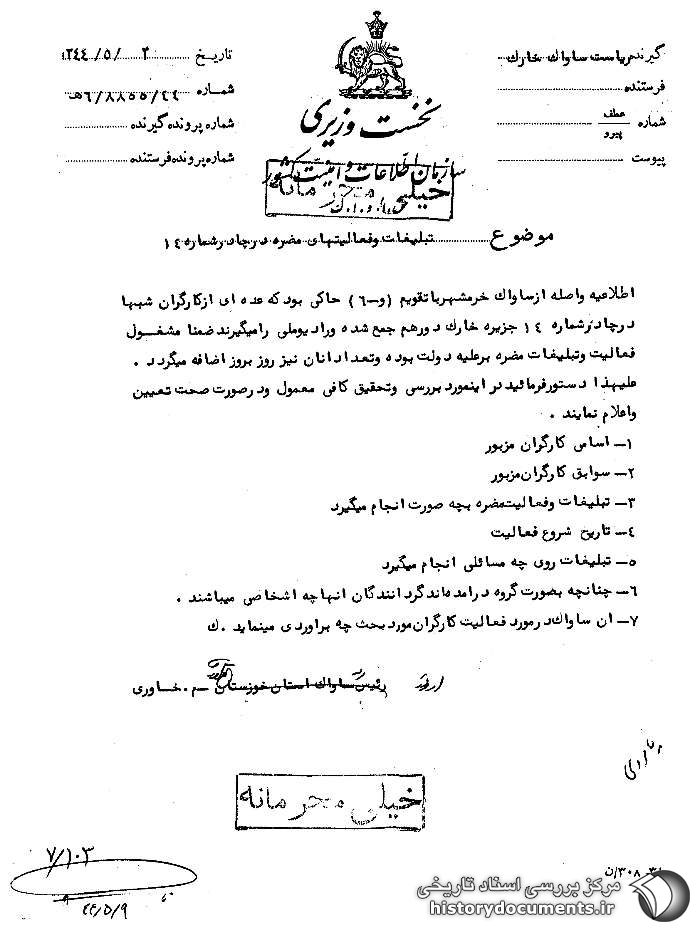 گیرنده ریاست ساواک خارک
فرستنده
شماره عطف
پیرو
پیوست
نخست وزیری
سازمان اطلاعات و امنیت کشور
س.ا.و.ا.ک
خیلی محرمانه
تاریخ ۳ /۵ /۱۳۴۴
شماره ۶/۸۸۵۵/۲۴هـ
شماره پرونده گیرنده
شماره پرونده فرستنده
موضوع تبلیغات وفعالیتهای مضره درچادرشماره ۱۴
اطلاعیه واصله ازساواک خرمشهرباتقویم (و–۶) حاکی بود که عده ای ازکارگران شبها
درچادرشماره ۱۴ جزیره خارک دورهم جمع شده ورادیوملی رامیگیرند ضمنا مشغول
فعالیت وتبلیغات مضره برعلیه دولت بوده وتعداد انان نیز روز بروز اضافه میگردد .
علیهذا دستورفرمائید در اینمورد بررسی وتحقیق کافی معمول ودرصورت صحت تعیین
واعلام نمایند .
۱– اسامی کارگران مزبور
۲– سوابق کارگران مزبور
۳– تبلیغات وفعالیت مضره بچه صورت انجام میگیرد
۴– تاریخ شروع فعالیت
۵– تبلیغات روی چه مسائلی انجام میگیرد
۶– چنانچه بصورت گروه درامده اند گردانندگان انها چه اشخاصی میباشند .
۷– ان ساواک درمورد فعالیت کارگران مورد بحث چه براوردی مینماید .ک
رئیس ساواک استان خوزستان – م.خاوری
خیلی محرمانه
۷/۱۰۳
۴۴/۵/۹
۳۰۸/ن
مرکز بررسی اسناد تاریخی
historydocuments.ir